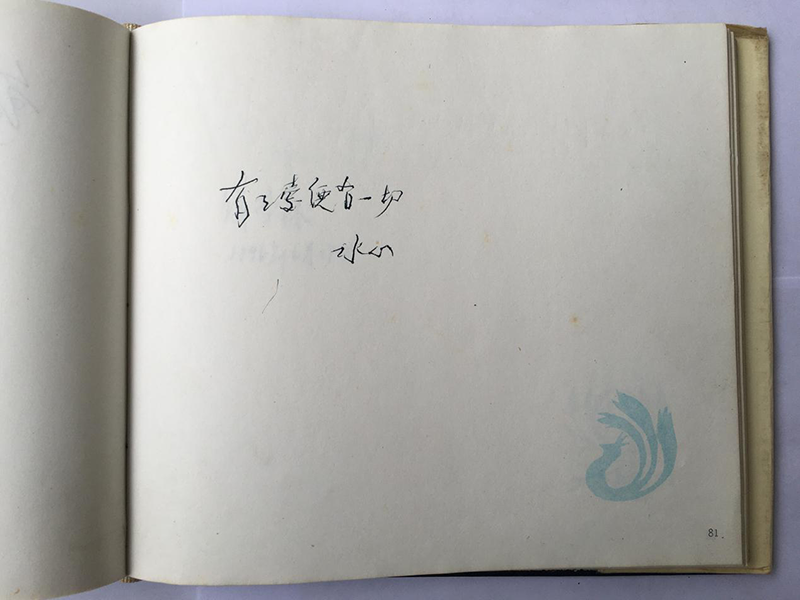 有了愛便有一切
冰心
81